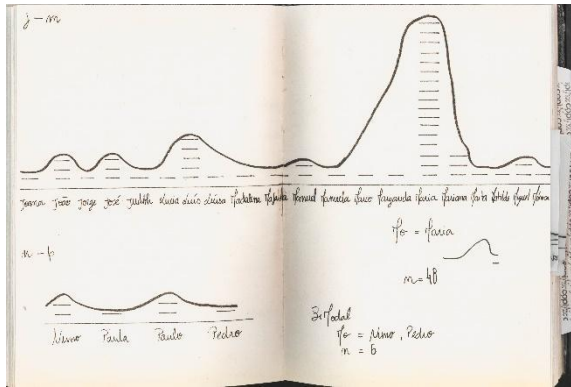 j - m
Joana João Jorge José Judith Lucia Luís Luísa Madalena Mafalda Manuel Manuela Marco Margarida Maria Mariana Marta Matilde Miguel Mónica
Mo = Maria
n = 48
n - p
Nuno Paula Paulo Pedro
Bimodal
Mo = Nuno, Pedro
n = 6